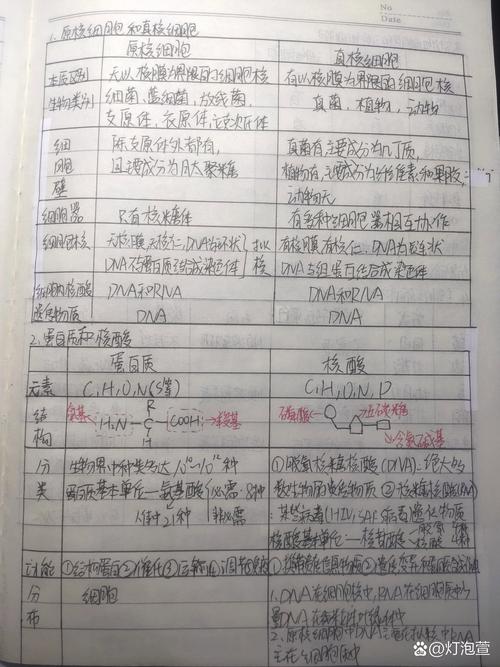 No
Date
1、原核细胞和真核细胞
原核细胞 真核细胞
本质区别 无以核膜为界限的细胞核 有以核膜为界限的细胞核
生物类别 细菌、蓝细菌、放线菌、 真菌、植物、动物
支原体、衣原体、立克次氏体
细 除支原体外都有, 真菌有,主要成分为几丁质,
胞 且主要成分为肽聚糖 植物有,主要成分为纤维素和果胶;
壁 动物无
细胞器 只有核糖体 有多种细胞器相互协作
细胞核 无核膜,无核仁,DNA为环状 拟 有核膜,有核仁,DNA为链状
DNA不与蛋白质结合成染色体 核 DNA与组蛋白结合成染色体
细胞内核酸 DNA和RNA DNA和RNA
遗传物质 DNA DNA
2、蛋白质和核酸
蛋白质 核酸
元素 C,H,O,N(S等) C,H,O,N,P
结 氨基 H₂N—C—COOH 羧基 R H 磷酸 五碳糖
构 含氮碱基
分 生物界中种类多达10¹⁰~10¹²种 ①脱氧核糖核酸(DNA):绝大多
类 蛋白质基本单元—氨基酸 必需:8种 数生物的遗传物质 ②核糖核酸(RNA)
人体中21种 非必需 :某些病毒(HIV,SARS病毒)遗传物质
核酸基本单元—核苷酸
功能 ①结构蛋白②催化③运输④调节⑤免疫 ①携带遗传信息的物质②遗传变异和蛋白质合成
分 细胞 1、DNA在细胞核中,RNA在细胞质中,少
布 量DNA在线粒体叶绿体中
2、原核细胞中DNA主要在拟核中,RNA
主在细胞质中
@灯泡萱